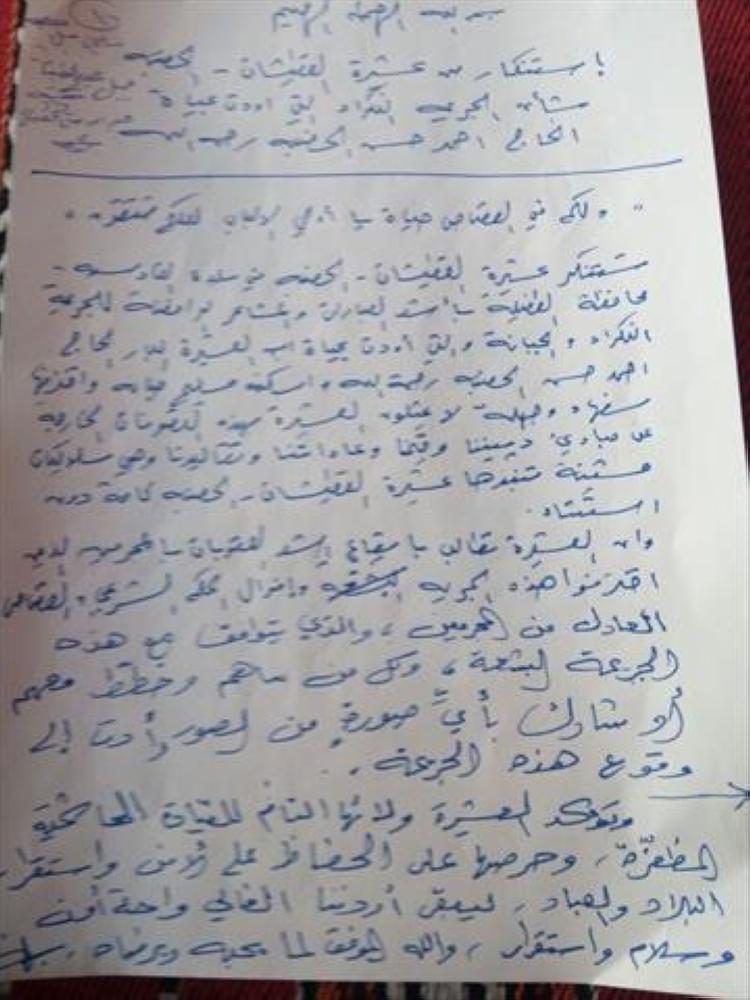 بسم الله الرحمن الرحيم
استنكار من عشيرة القطيشات - الحصنه
بشأن الجريمة النكراء التي اودت بحياة
الحاج احمد حسن الحصنه رحمه الله
" ولكم في القصاص حياة يا أولي الالباب لعلكم تتقون "
تستنكر عشيرة القطيشات - الحصنه في بلدة القادسيه -
محافظة الطفيلة بأشد العبارات والمشاعر الرافضة للجريمة
النكراء والجبانة والتي أودت بحياة ابن العشيرة البار الحاج
احمد حسن الحصنه رحمة الله واسكنه فسيح جنانه واقترفها
سفهاء وجهلة لا يمثلون العشيرة بهذه التصرفات الخارجة
عن مبادئ ديننا وقيمنا وعاداتنا وتقاليدنا وهي سلوكيات
مشينة تنبذها عشيرة القطيشات - الحصنه كافة دون
استثناء.
وان العشيرة تطالب بايقاع اشد العقوبات بالمجرمين الذين
اقترفوا هذه الجريمة وإنزال الحكم الشرعي والقصاص
العادل من المجرمين، والذي يتوافق مع هذه
الجريمة البشعة، وكل من ساهم وخطط معهم
أو شارك بأيِّ صورةٍ من الصور وأدت إلى
وقوع هذه الجريمة.
وتؤكد العشيرة ولائها التام للقيادة الهاشمية
المظفرّة، وحرصها على الحفاظ على الأمن واستقرار
البلاد والعباد، ليبقى أردننا الغالي واحة أمن
وسلام واستقرار، والله الموفق لما يحبه ويرضاه.